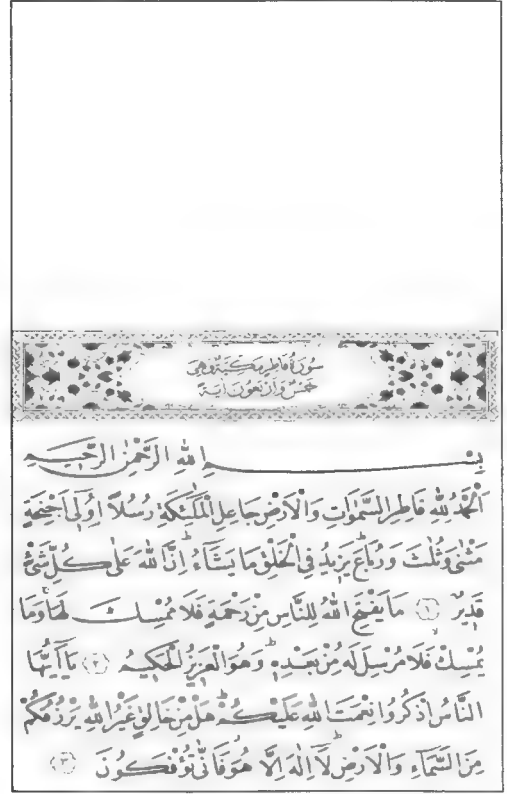 سُورَةُ فَاطِرٍ مَكِّيَّةٌ وَهِيَ
خَمْسٌ وَاَرْبَعُونَ اٰيَةً
بِسْمِ اللّٰهِ الرَّحْمٰنِ الرَّحِيمِ
اَلْحَمْدُ لِلّٰهِ فَاطِرِ السَّمٰوَاتِ وَالْاَرْضِ جَاعِلِ الْمَلٰٓئِكَةِ رُسُلًا اُو۬لٓى اَجْنِحَةٍ
مَثْنٰى وَثُلٰثَ وَرُبَاعَۜ يَزِيدُ فِى الْخَلْقِ مَا يَشَٓاءُۜ اِنَّ اللّٰهَ عَلٰى كُلِّ شَىْءٍ
قَدِيرٌ ﴿١﴾ مَا يَفْتَحِ اللّٰهُ لِلنَّاسِ مِنْ رَحْمَةٍ فَلَا مُمْسِكَ لَهَاۚ وَمَا
يُمْسِكْۙ فَلَا مُرْسِلَ لَهُ مِنْ بَعْدِهِۜ وَهُوَ الْعَزِيزُ الْحَكِيمُ ﴿٢﴾ يَٓا اَيُّهَا
النَّاسُ اذْكُرُوا نِعْمَتَ اللّٰهِ عَلَيْكُمْۜ هَلْ مِنْ خَالِقٍ غَيْرُ اللّٰهِ يَرْزُقُكُمْ
مِنَ السَّمَٓاءِ وَالْاَرْضِۜ لَٓا اِلٰهَ اِلَّا هُوَۘ فَاَنّٰى تُؤْفَكُونَ ﴿٣﴾